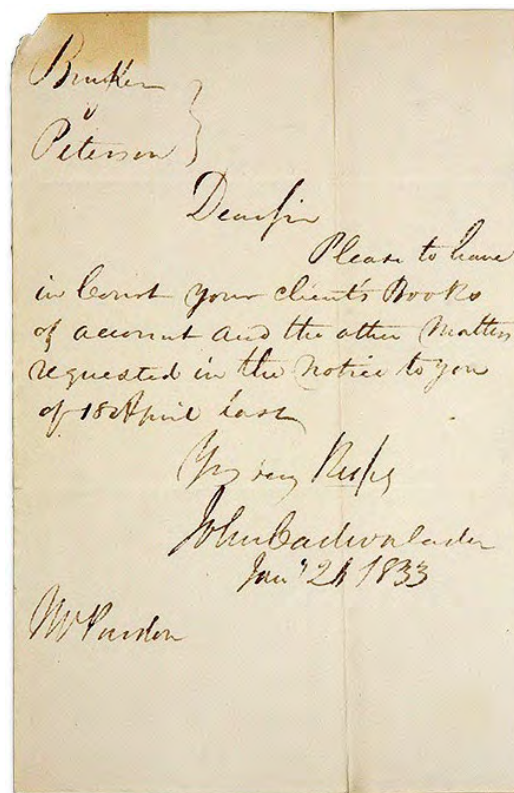 v
Peterson }
Dear Sir
Please to have
in Court your client's Books
of account and the other Matters
requested in the Notice to you
of 18 April last
Yrs very Resp'y
John Cadwalader
Jan'y 1833
Mr Purdon